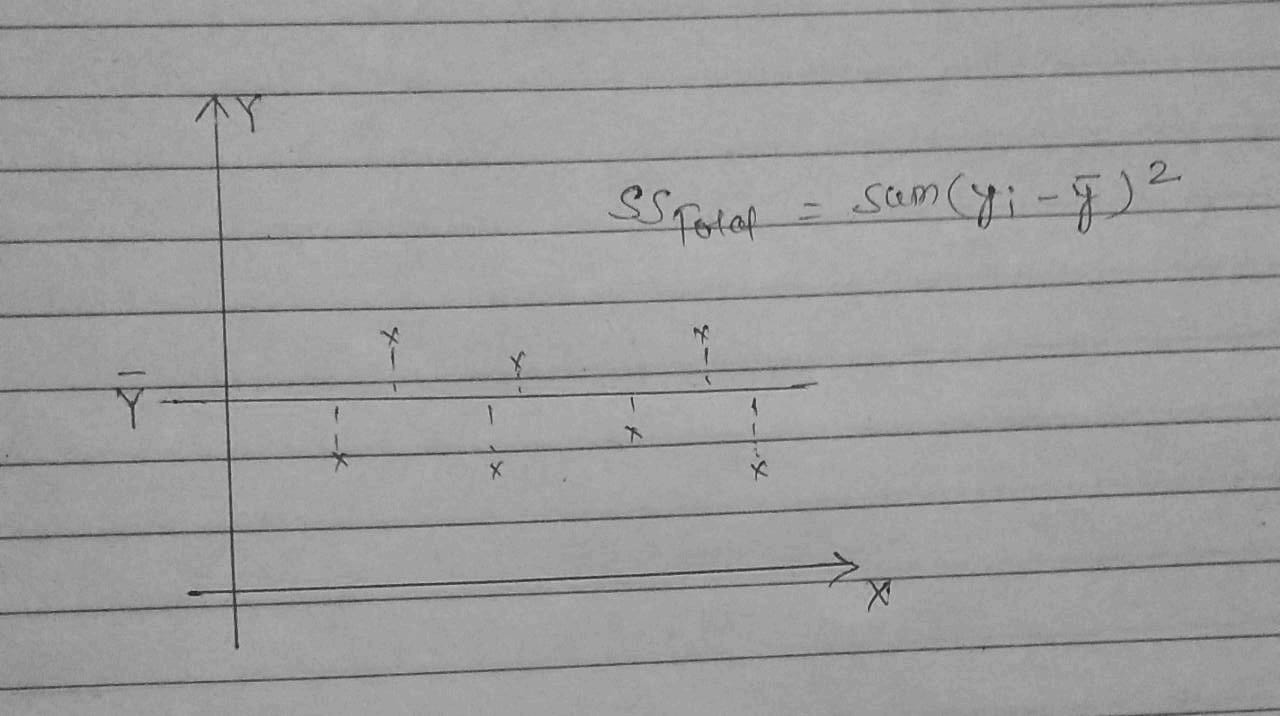 Y
SS Total = sum(yi - ȳ)²
Ȳ
X